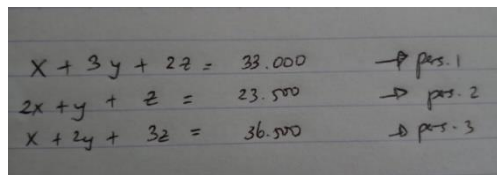 x + 3y + 2z = 33.000 → pers. 1
2x + y + z = 23.500 → pers. 2
x + 2y + 3z = 36.500 → pers. 3